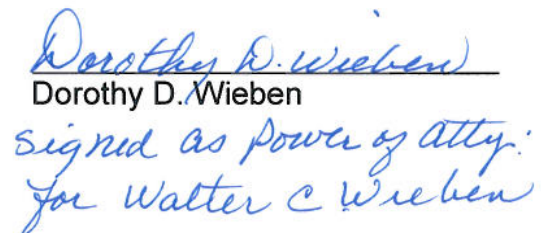 Dorothy D. Wieben
Dorothy D. Wieben
signed as Power of atty:
for Walter C Wieben